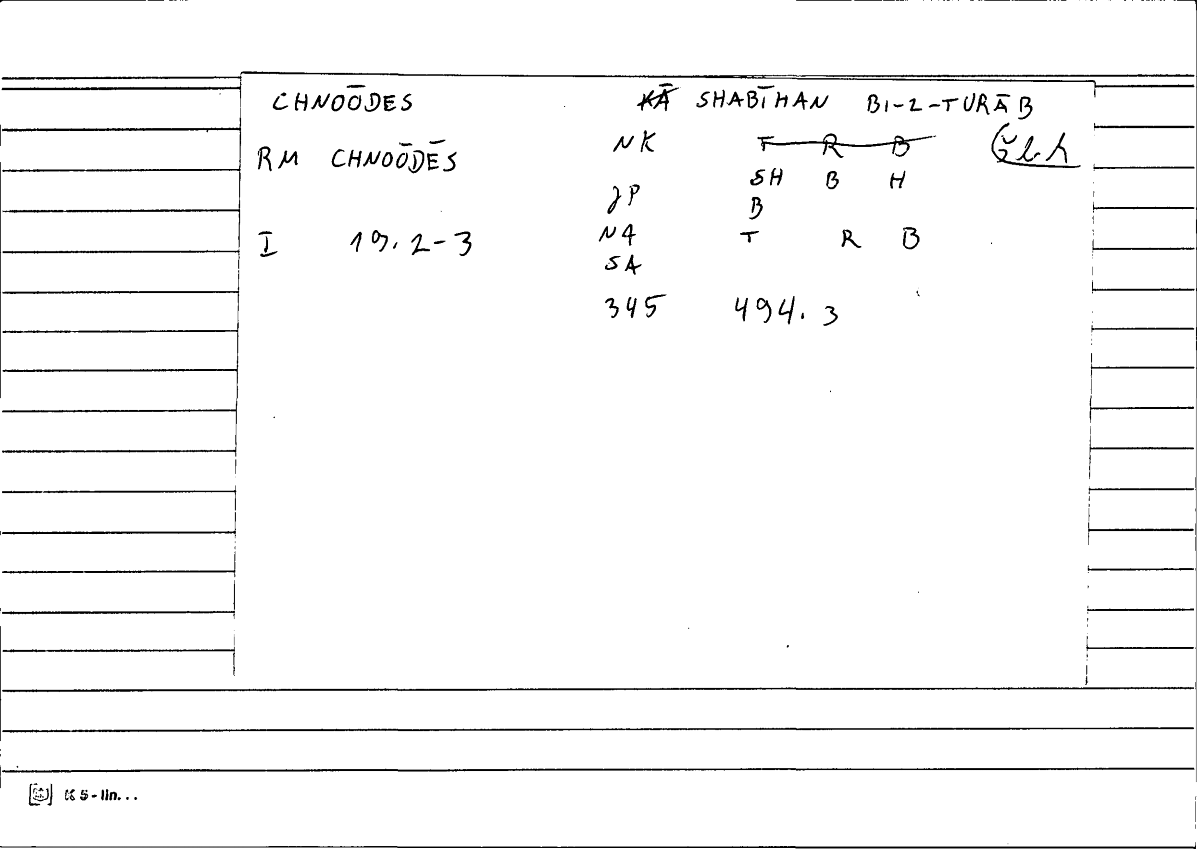 CHNOŌDES K̶Ā̶ SHABĪHAN BI-L-TURĀB
RM CHNOŌDĒS NK T̶ R̶ B̶ šbh
SH B H
JP B
I 19.2-3 N4 T R B
SA
345 494.3
K5-lin...